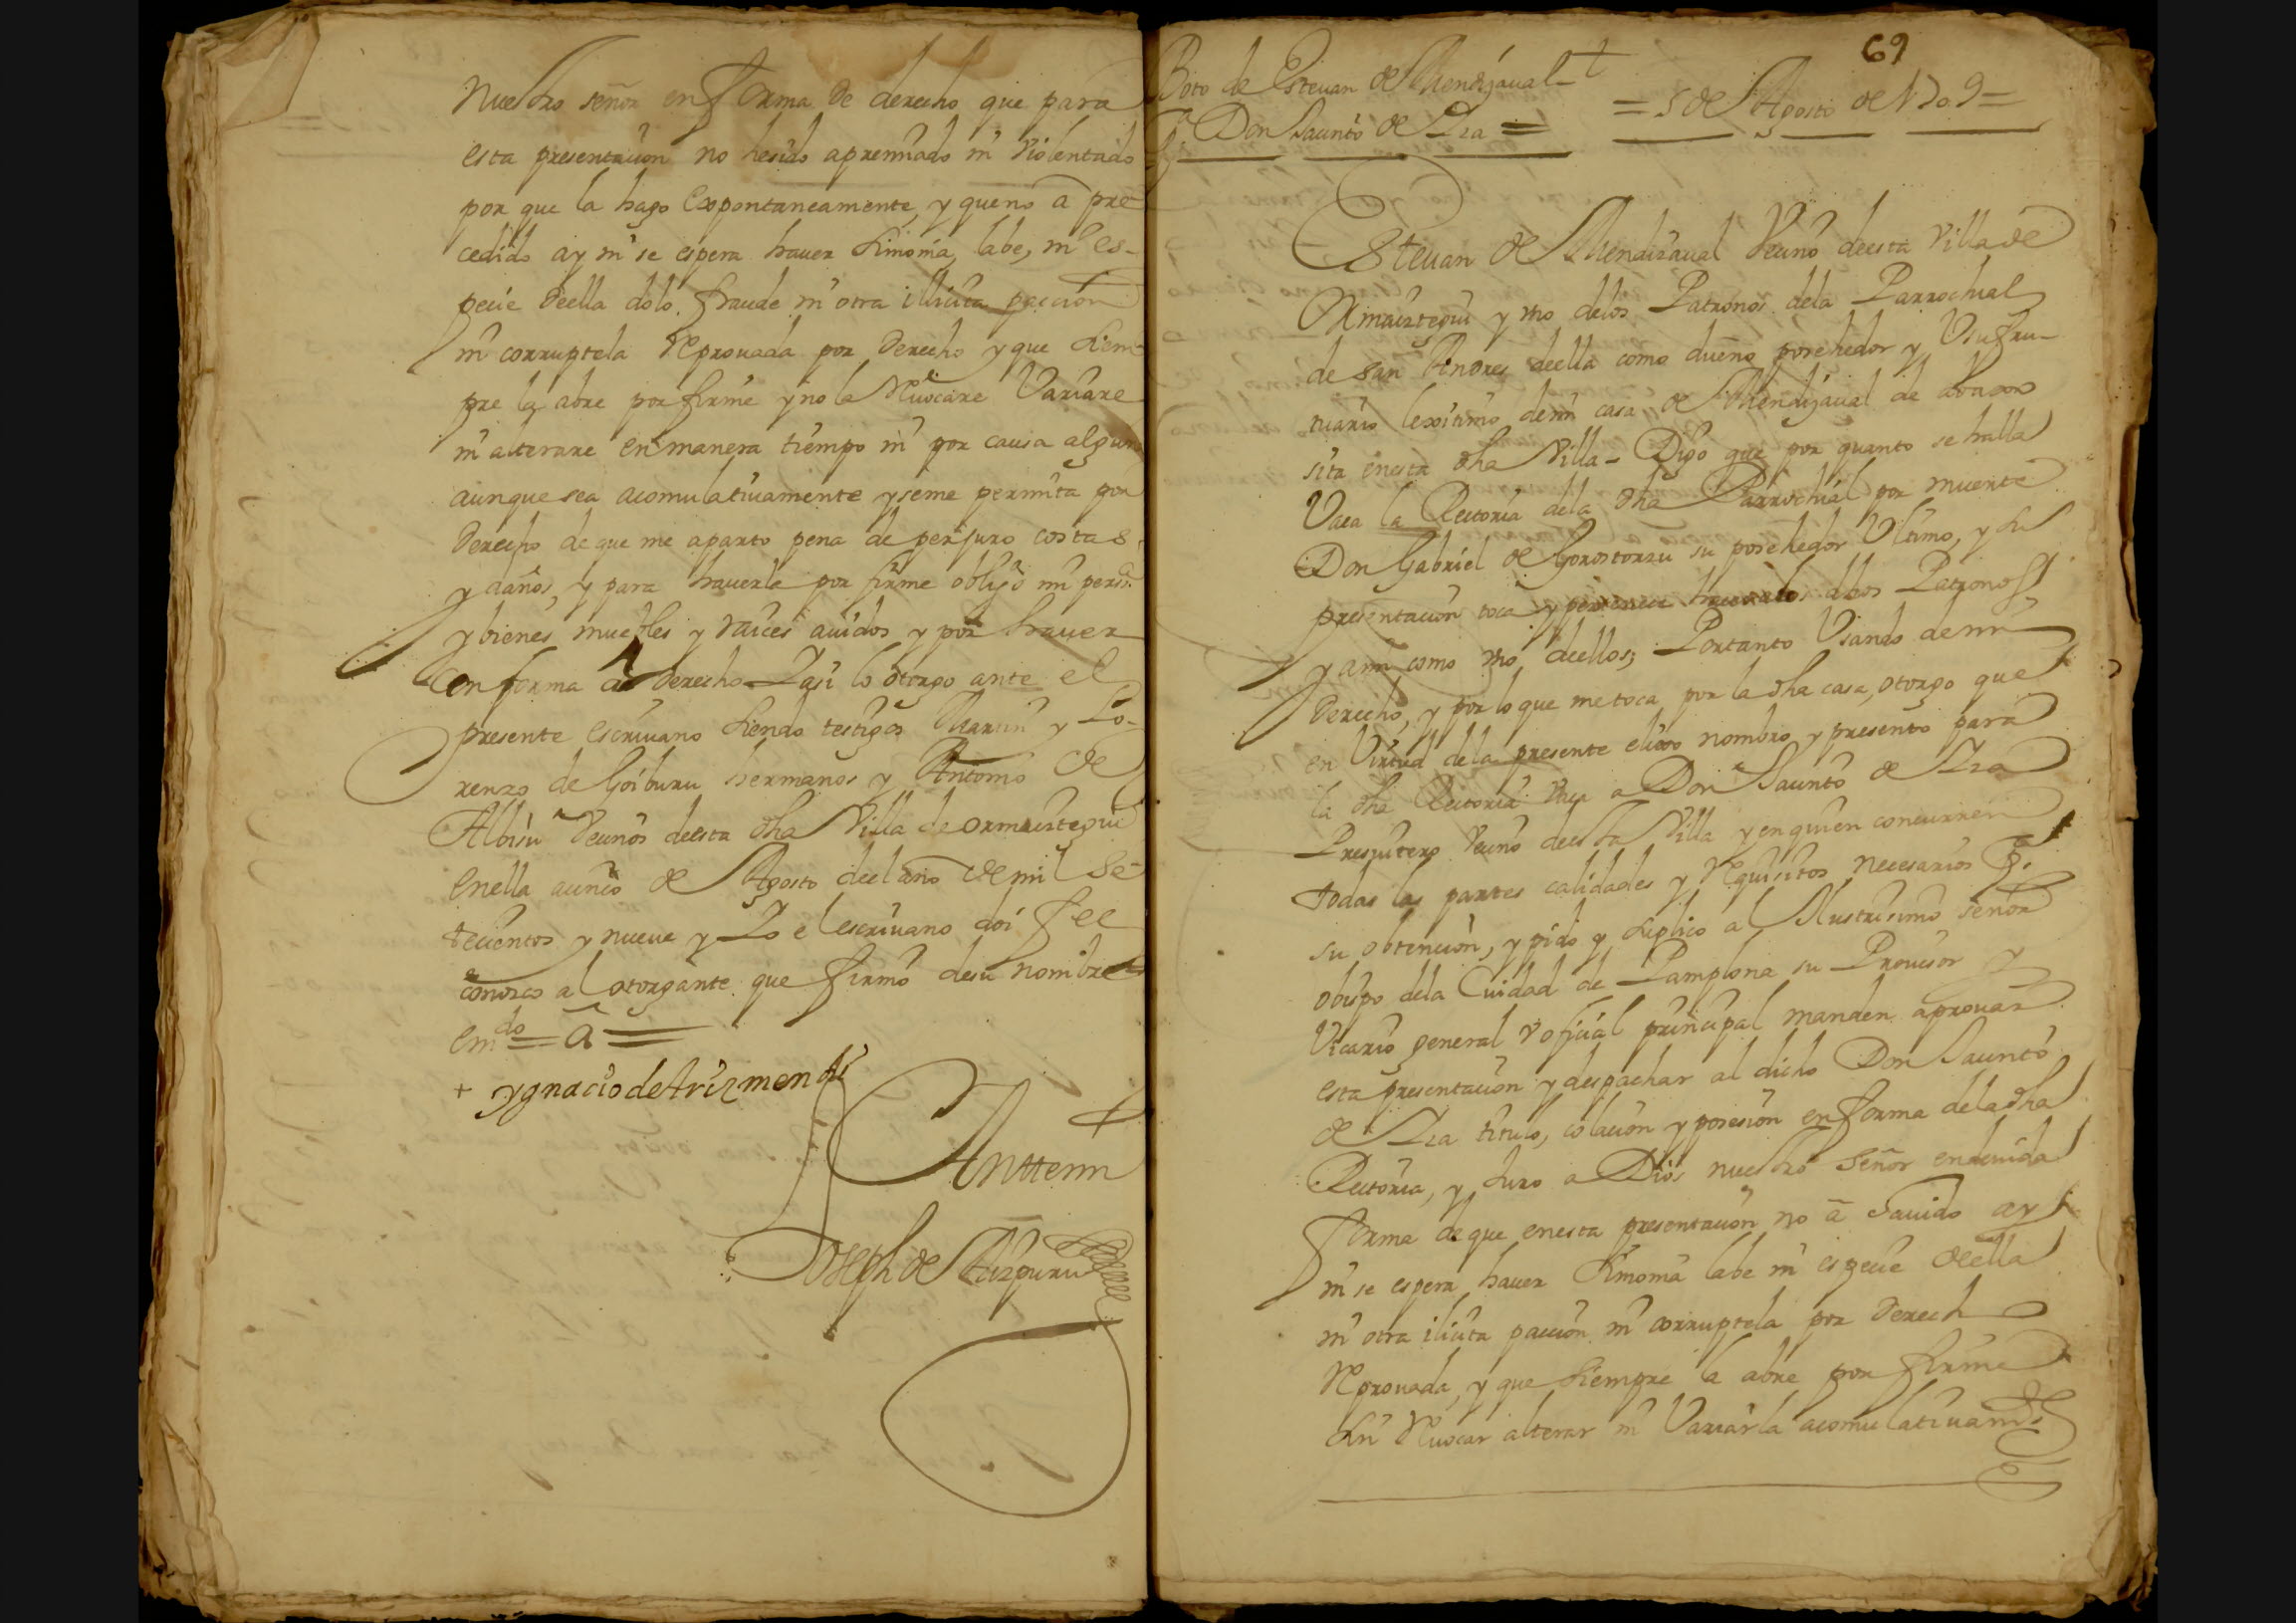 Nuestro señor en forma de derecho que para
esta presentacion no he sido apremiado ni violentado
por que la hago expontaneamente y que no a pre
cedido ay ni se espera hauer simonia, labe, ni es-
pecie deella dolo, fraude ni otra illicita paccion
ni corruptela reprouada por derecho y que siem
pre la abre por firme y no la reuocare variare
ni alterare en manera tiempo ni por causa alguna
aunque sea acomulatiuamente y se me permita por
derecho de que me aparto pena de perjuro costas
y daños, y para hauerla por firme obligo mi persª
y bienes muebles y raices auidos y por hauer
en forma de derecho Y asi lo otorgo ante el
presente escriuano siendo testigos Martin y Lo-
renzo de Goiburu hermanos y Antonio de
Albisu vecinos deesta dha Villa de ormaiztegui
en ella a cinco de Agosto del año de mil se-
tecientos y nueue y Yo el escriuano doi fee
conozco al otorgante que firmo de su nombre
em^do = a =
+ ygnacio de Arizmendi
Antemi
Joseph de Aizpuru
69
Boto de Estevan de Mendizaual
pª Don Jacinto de = 5 de Agosto de 1709 =
Estevan de Mendizaual vecino deesta Villa de
Ormaiztegui y vno delos Patronos dela Parrochial
de San Andres deella como dueño posehedor y Vsufru-
tuario lexitimo de mi casa de Mendizaual de abaxo
sita en esta dha Villa - Digo que por quanto se halla
Vaca la Rectoria dela dha Parrochial por muerte
Don Gabriel de Gorostorzu su posehedor Vltimo, y su
presentacion toca y pertenece a dhos Patronos
y a mi como vno deellos; Portanto Vsando de mi
derecho, y por lo que me toca por la dha casa, otorgo que
en Virtud dela presente elixo nombro y presento para
la dha Rectoria vaca a Don Jacinto de
Presuitero vecino deesta Villa y en quien concurren
todas las partes calidades y requisitos necesarios pª
su obtencion, y pido y suplico al Illustrisimo señor
obispo dela Ciudad de Pamplona su Prouisor y
Vicario general y oficial principal manden aprouar
esta presentacion y despachar al dicho Don Jacinto
de titulo, colacion y posesion en forma dela dha
Rectoria, y Juro a Dios nuestro Señor en deuida
forma de que en esta presentacion no a hauido ay
ni se espera hauer simonia labe ni especie deella
ni otra ilicita paccion ni corruptela por derecho
reprouada, y que siempre la abre por firme
sin reuocar alterar ni Variarla acomulatiuamte